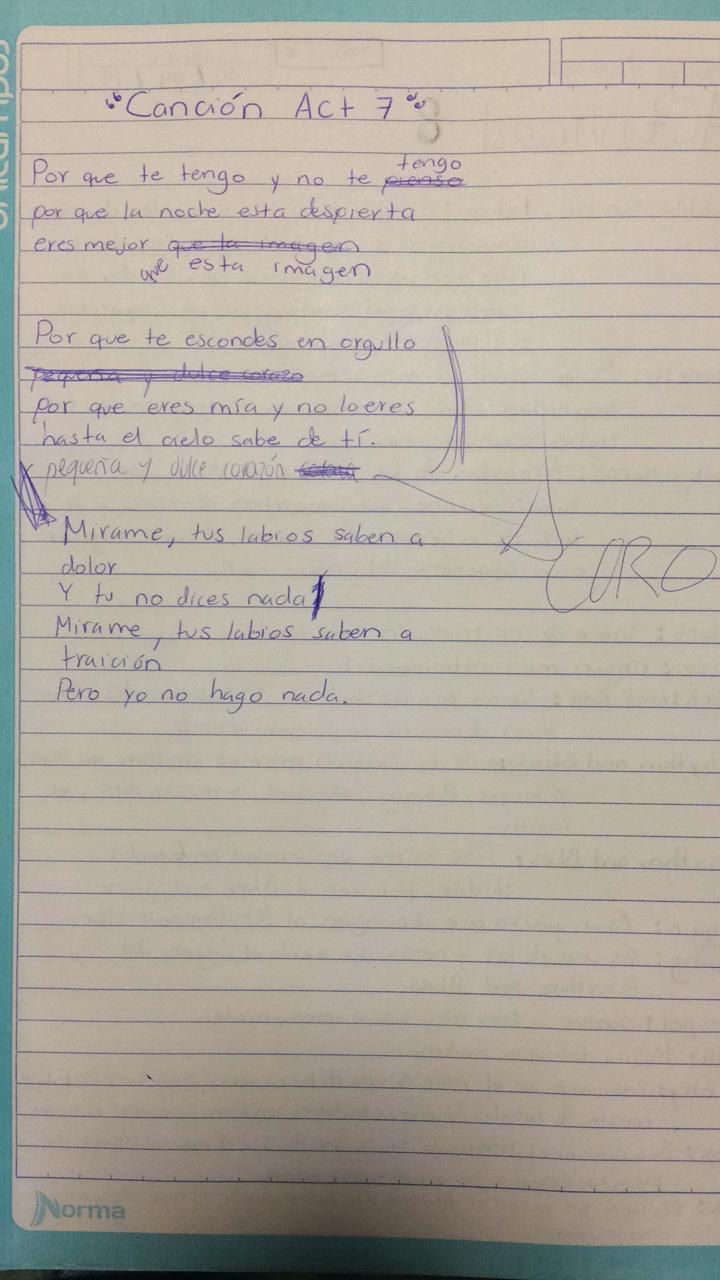 "Canción Act 7"
tengo
Por que te tengo y no te pienso
por que la noche esta despierta
eres mejor que la imagen
que esta imagen
Por que te escondes en orgullo
pequeña y dulce corazo
por que eres mía y no lo eres
hasta el cielo sabe de tí.
pequeña y dulce corazón
CORO
Mirame, tus labios saben a
dolor
Y tu no dices nada
Mirame, tus labios saben a
traición
Pero yo no hago nada.
Norma